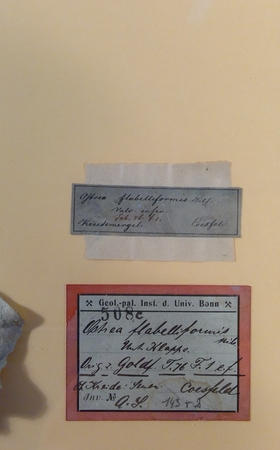 Ostrea flabelliformis Nils.
Valv. infer.
Tab. 76. f. 1.
Kreidemergel. Coesfeld
Geol.-pal. Inst. d. Univ. Bonn
508c
Ostrea flabelliformis Nils
Unt. Klappe.
Orig. z. Goldf. T. 76 F. 1 ef.
Coesfeld
Inv. №